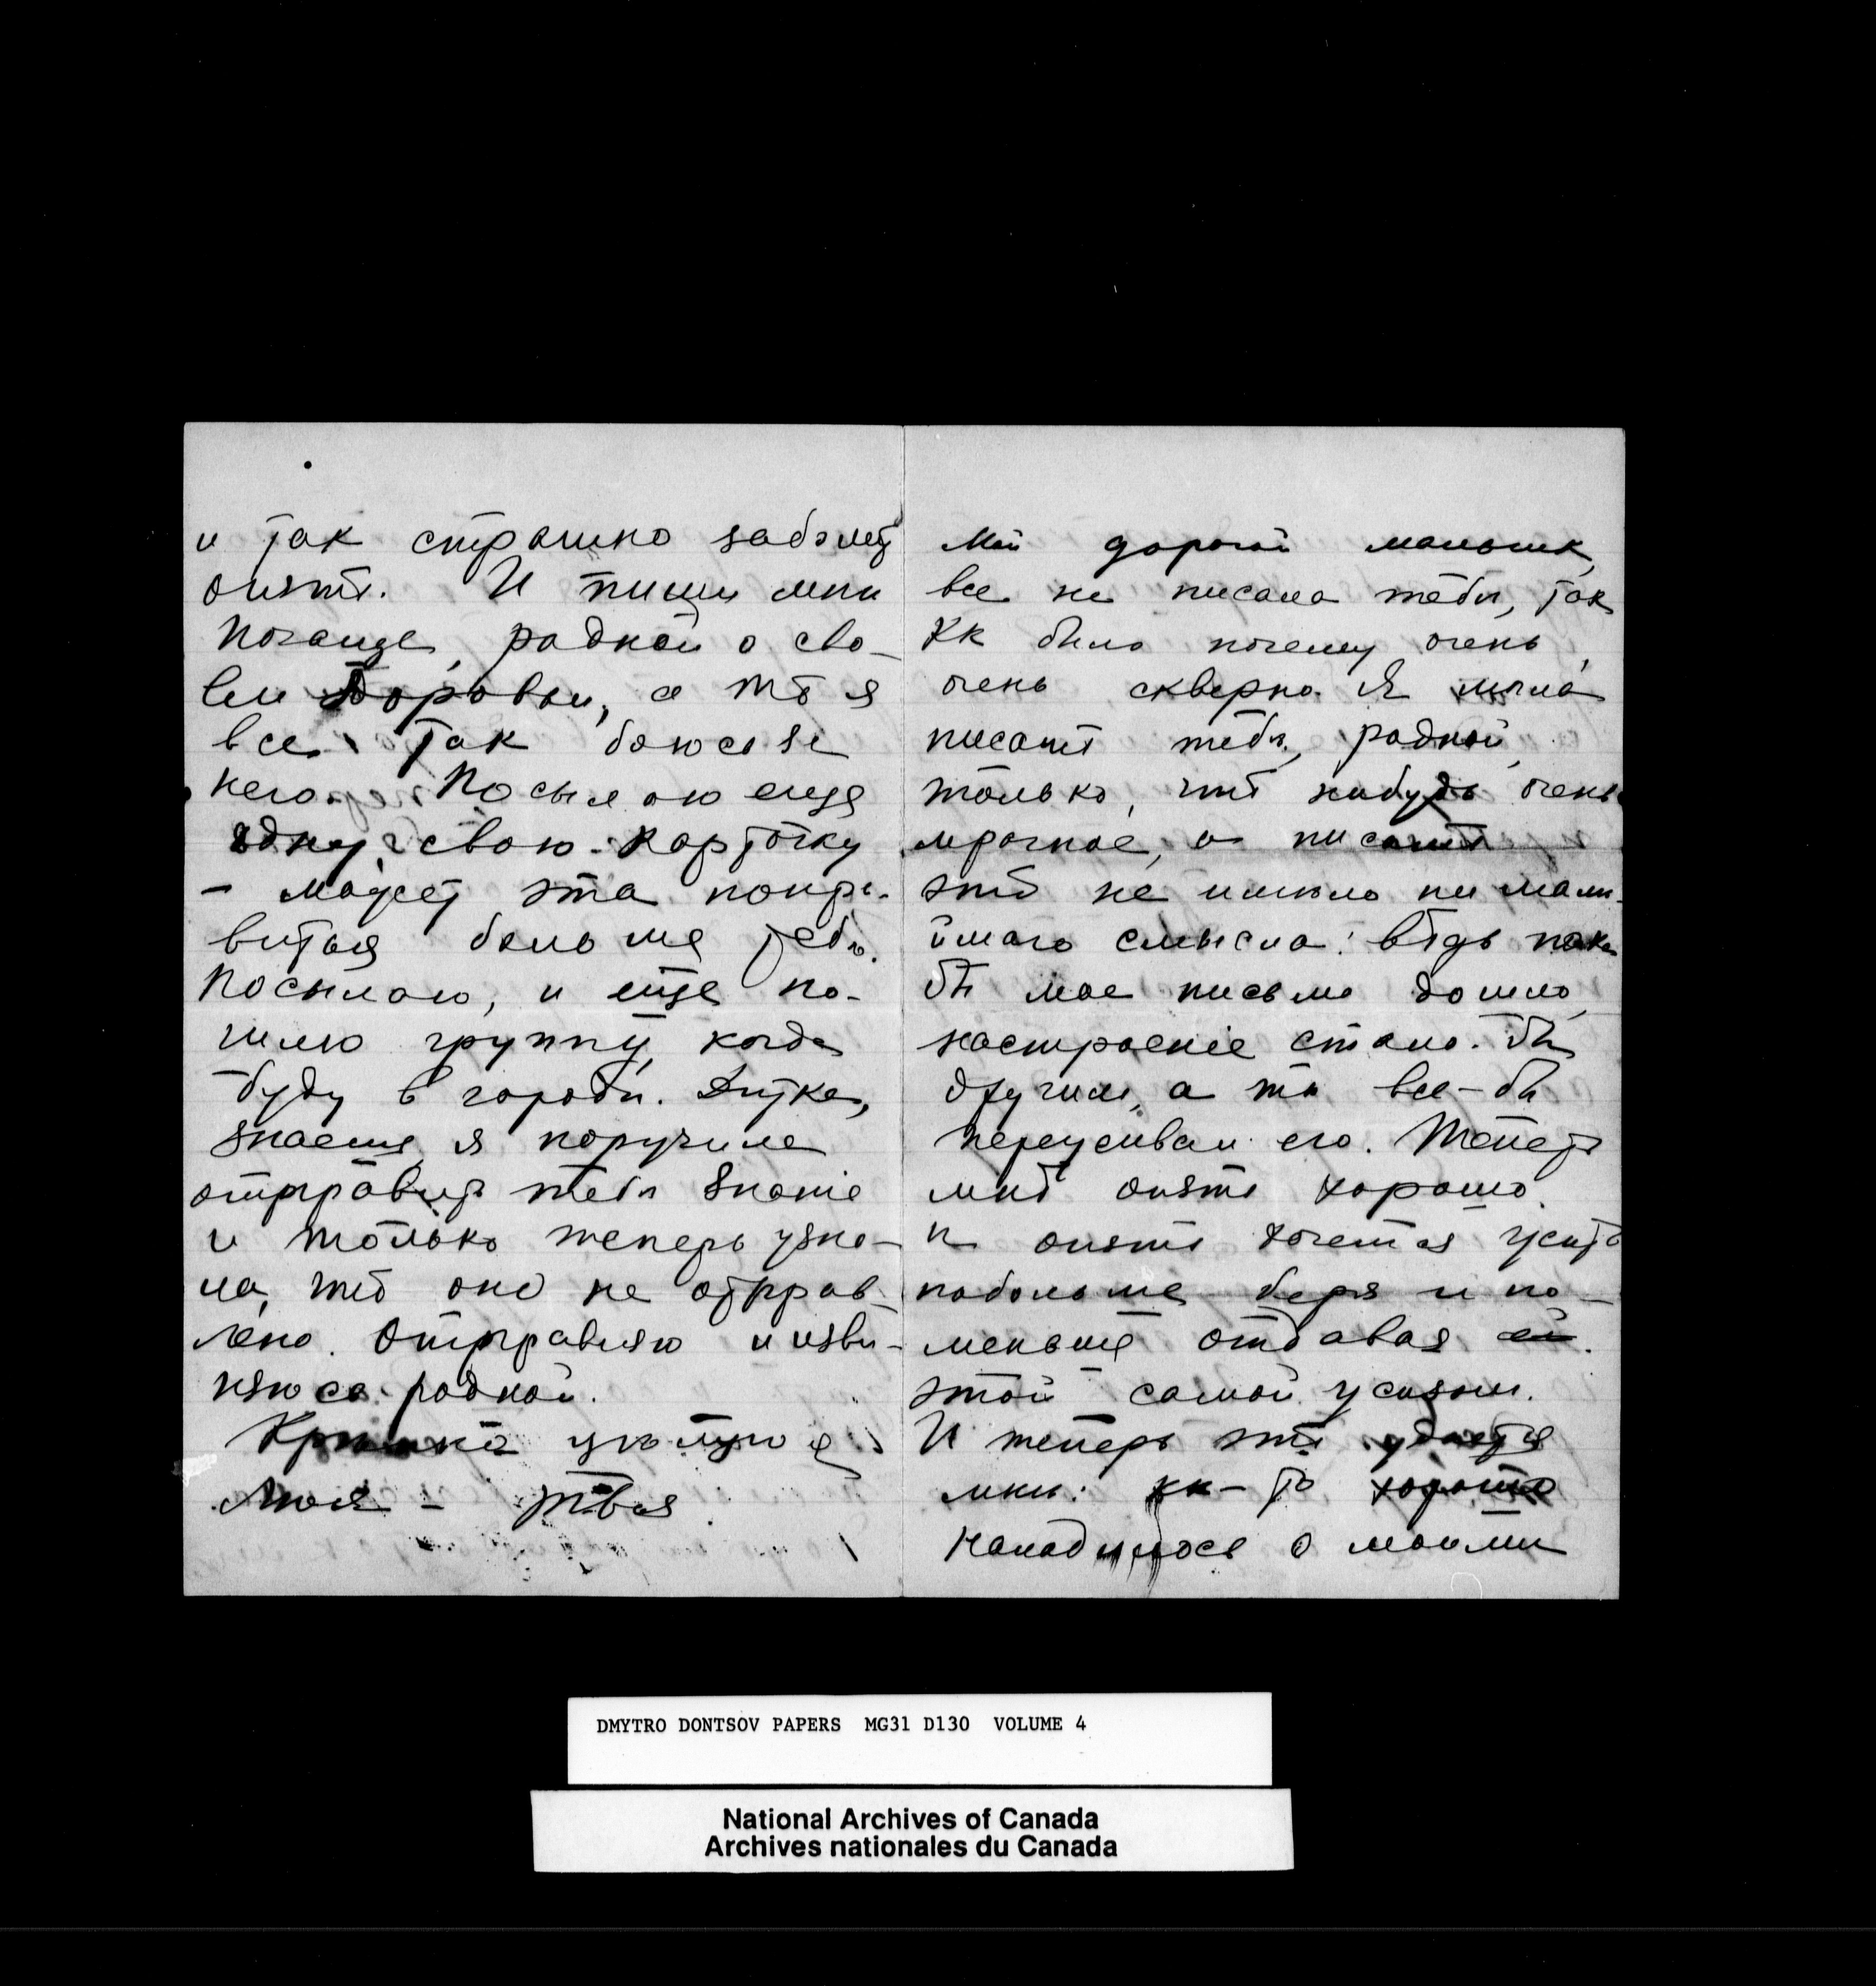 и так страшно заболѣт
опять. И пиши мнѣ
почаще, родной о сво-
ем здоровьи, а то я
все так боюсь за
него. Посылаю еще
одну свою карточку
- может эта понра-
виться больше тебѣ.
Посылаю, и еще по-
шлю группу, когда
буду в городѣ. Дѣтка,
знаешь, я поручила
отправить тебѣ
и только теперь узна-
ла, что оно не отправ-
лено. Отправляю и изви-
няюсь родной.
Крѣпко цѣлую
Твоя
Мой дорогой мальчик,
все не писала тебѣ, так
кк было почему очень,
очень скверно. Я могла
писать тебѣ, родной,
только, что нибудь очень
мрачное, а писать
это не имѣло ни малѣ-
йшаго смысла: вѣдь пока
бы мое письмо дошло,
настроеніе стало-бы
другим, а ты все-бы
переживал его. Теперь
мнѣ опять хорошо
и опять хочется жить
побольше беря и по-
меньше отдавая
этой самой жизни.
И теперь это удается
мнѣ: кк-то хорошо
наладилось с моими
DMYTRO DONTSOV PAPERS MG31 D130 VOLUME 4
National Archives of Canada
Archives nationales du Canada